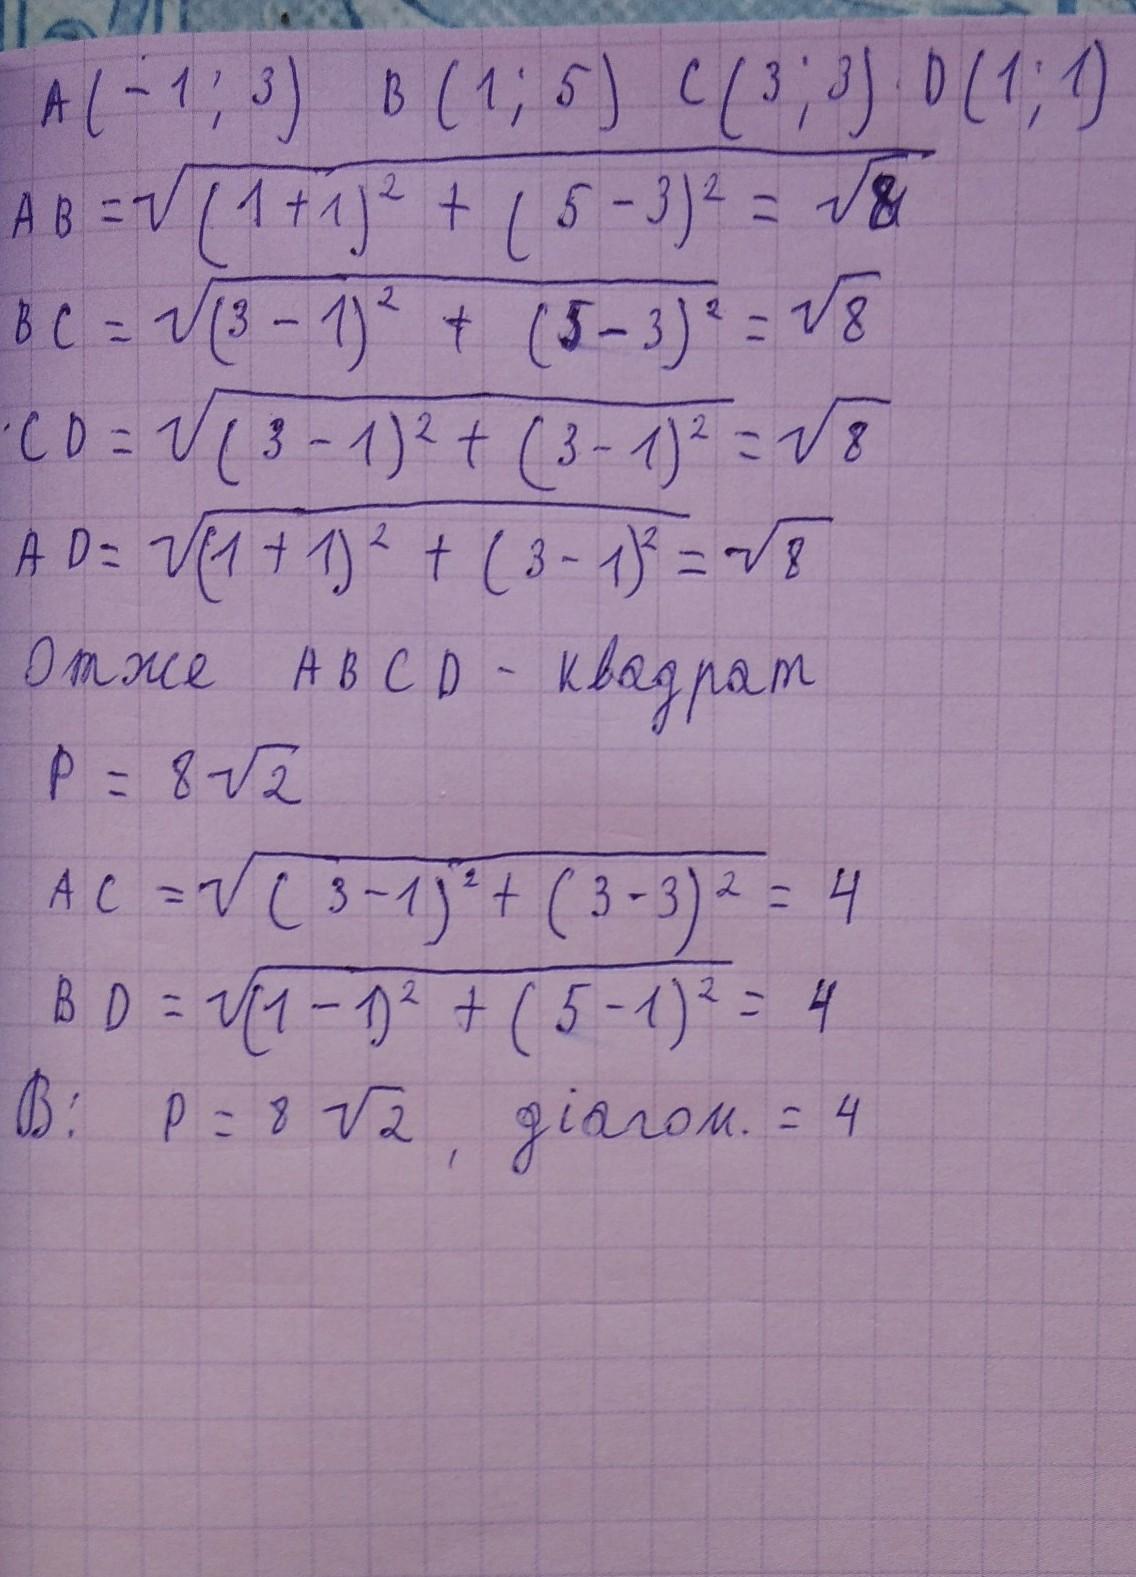 A(-1; 3) B(1; 5) C(3; 3) D(1; 1)
AB = √((1+1)² + (5-3)²) = √8
BC = √((3-1)² + (5-3)²) = √8
CD = √((3-1)² + (3-1)²) = √8
AD = √((1+1)² + (3-1)²) = √8
Отже ABCD - квадрат
P = 8√2
AC = √((3-1)² + (3-3)²) = 4
BD = √((1-1)² + (5-1)²) = 4
В: P = 8√2, діагон. = 4